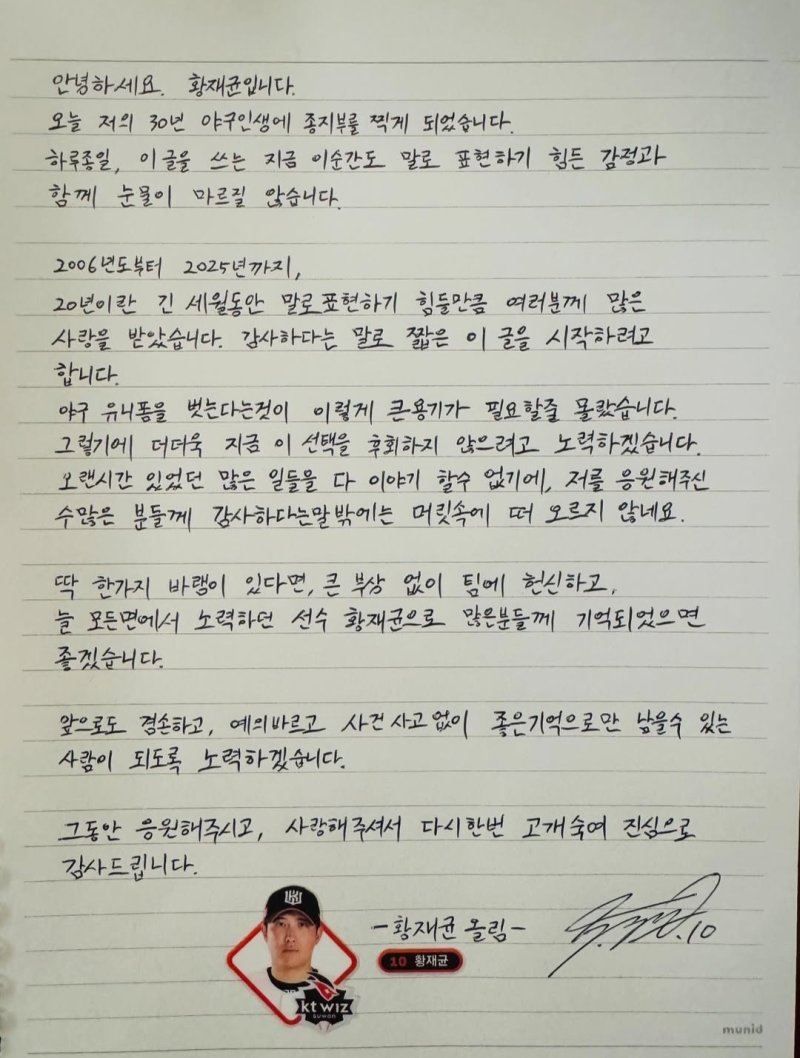 안녕하세요. 황재균입니다.
오늘 저의 30년 야구인생에 종지부를 찍게 되었습니다.
하루종일, 이글을 쓰는 지금 이순간도 말로 표현하기 힘든 감정과
함께 눈물이 마르질 않습니다.
2006년도부터 2025년까지,
20년이란 긴 세월동안 말로표현하기 힘들만큼 여러분께 많은
사랑을 받았습니다. 감사하다는 말로 짧은 이 글을 시작하려고
합니다.
야구 유니폼을 벗는다는것이 이렇게 큰용기가 필요할줄 몰랐습니다.
그렇기에 더더욱 지금 이 선택을 후회하지 않으려고 노력하겠습니다.
오랜시간 있었던 많은 일들을 다 이야기 할수 없기에, 저를 응원해주신
수많은 분들께 감사하다는말밖에는 머릿속에 떠 오르지 않네요.
딱 한가지 바램이 있다면, 큰 부상 없이 팀에 헌신하고,
늘 모든면에서 노력하던 선수 황재균으로 많은분들께 기억되었으면
좋겠습니다.
앞으로도 겸손하고, 예의바르고 사건 사고없이 좋은기억으로만 남을수 있는
사람이 되도록 노력하겠습니다.
그동안 응원해주시고, 사랑해주셔서 다시한번 고개숙여 진심으로
감사드립니다.
-황재균 올림-
.10
10 황재균
kt wiz
suwon
munid